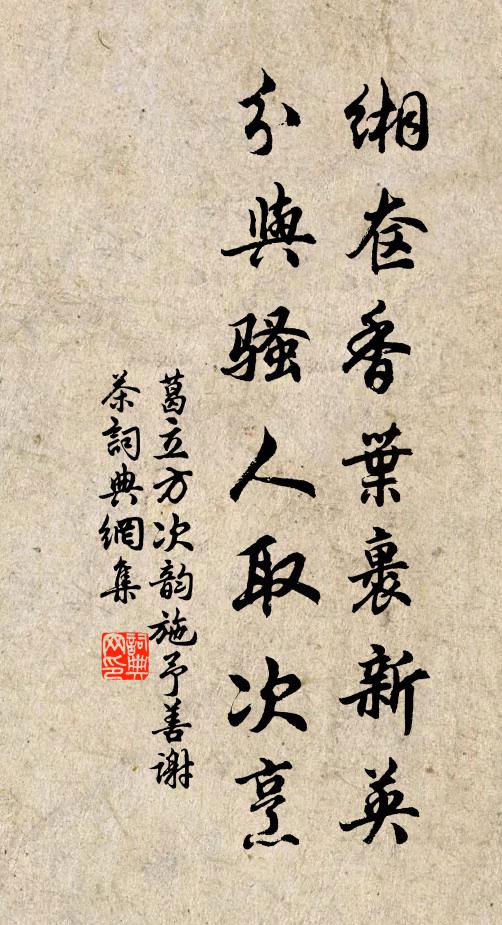 緗奁香葉裹新英
分與騷人取次烹
葛立方次韵施予善謝
茶詞典網集
詞典
网印